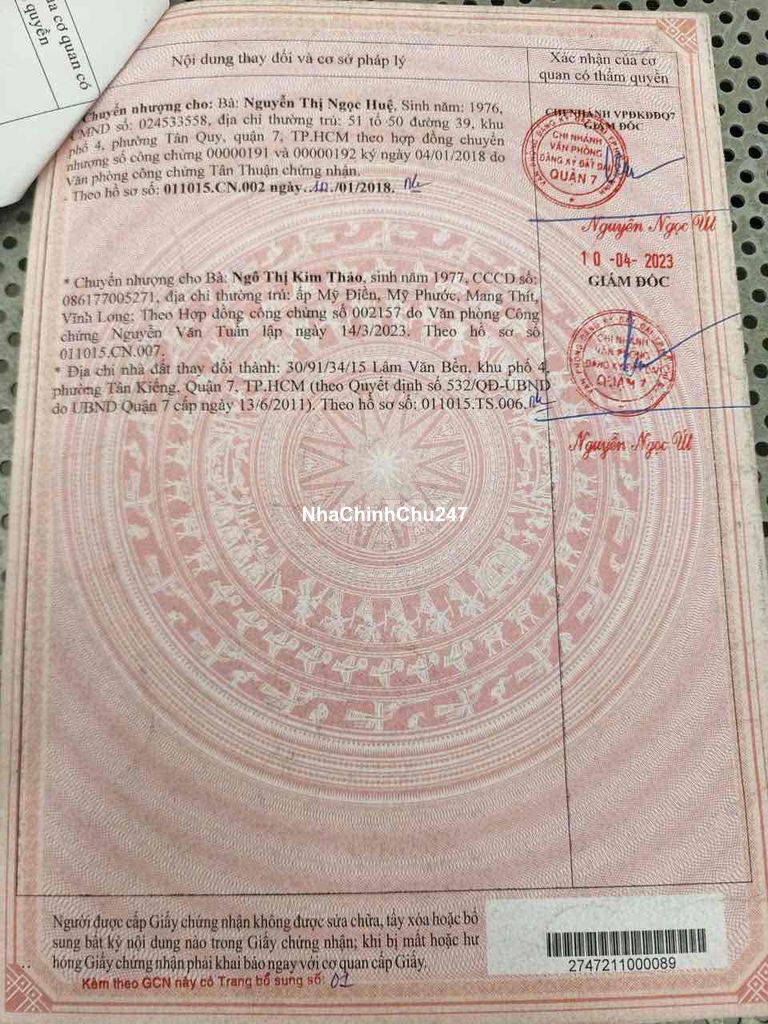 ủa cơ quan có
quyền
Nội dung thay đổi và cơ sở pháp lý
Xác nhận của cơ
quan có thẩm quyền
Chuyển nhượng cho: Bà: Nguyễn Thị Ngọc Huệ, Sinh năm: 1976,
CMND số: 024533558, địa chỉ thường trú: 51 tổ 50 đường 39, khu
phố 4, phường Tân Quy, quận 7, TP.HCM theo hợp đồng chuyển
nhượng số công chứng 00000191 và 00000192 ký ngày 04/01/2018 do
Văn phòng công chứng Tân Thuận chứng nhận.
. Theo hồ sơ số: 011015.CN.002 ngày 10/01/2018.
CHI NHÁNH VPĐKĐĐQ7
GIÁM ĐỐC
CHI NHÁNH
VĂN PHÒNG
ĐĂNG KÝ ĐẤT ĐAI
QUẬN 7
Nguyễn Ngọc Út
10 -04- 2023
GIÁM ĐỐC
* Chuyển nhượng cho Bà: Ngô Thị Kim Thảo, sinh năm 1977, CCCD số:
086177005271, địa chỉ thường trú: ấp Mỹ Điền, Mỹ Phước, Mang Thít,
Vĩnh Long; Theo Hợp đồng công chứng số 002157 do Văn phòng Công
chứng Nguyễn Văn Tuấn lập ngày 14/3/2023. Theo hồ sơ số
011015.CN.007.
* Địa chỉ nhà đất thay đổi thành: 30/91/34/15 Lâm Văn Bền, khu phố 4,
phường Tân Kiểng, Quận 7, TP.HCM (theo Quyết định số 532/QĐ-UBND
do UBND Quận 7 cấp ngày 13/6/2011). Theo hồ sơ số: 011015.TS.006.
CHI NHÁNH
VĂN PHÒNG
ĐĂNG KÝ ĐẤT ĐAI
QUẬN 7
Nguyễn Ngọc Út
NhaChinhChu247
Người được cấp Giấy chứng nhận không được sửa chữa, tẩy xóa hoặc bổ
sung bất kỳ nội dung nào trong Giấy chứng nhận; khi bị mất hoặc hư
hỏng Giấy chứng nhận phải khai báo ngay với cơ quan cấp Giấy.
Kèm theo GCN này có Trang bổ sung số: 01
2747211000089